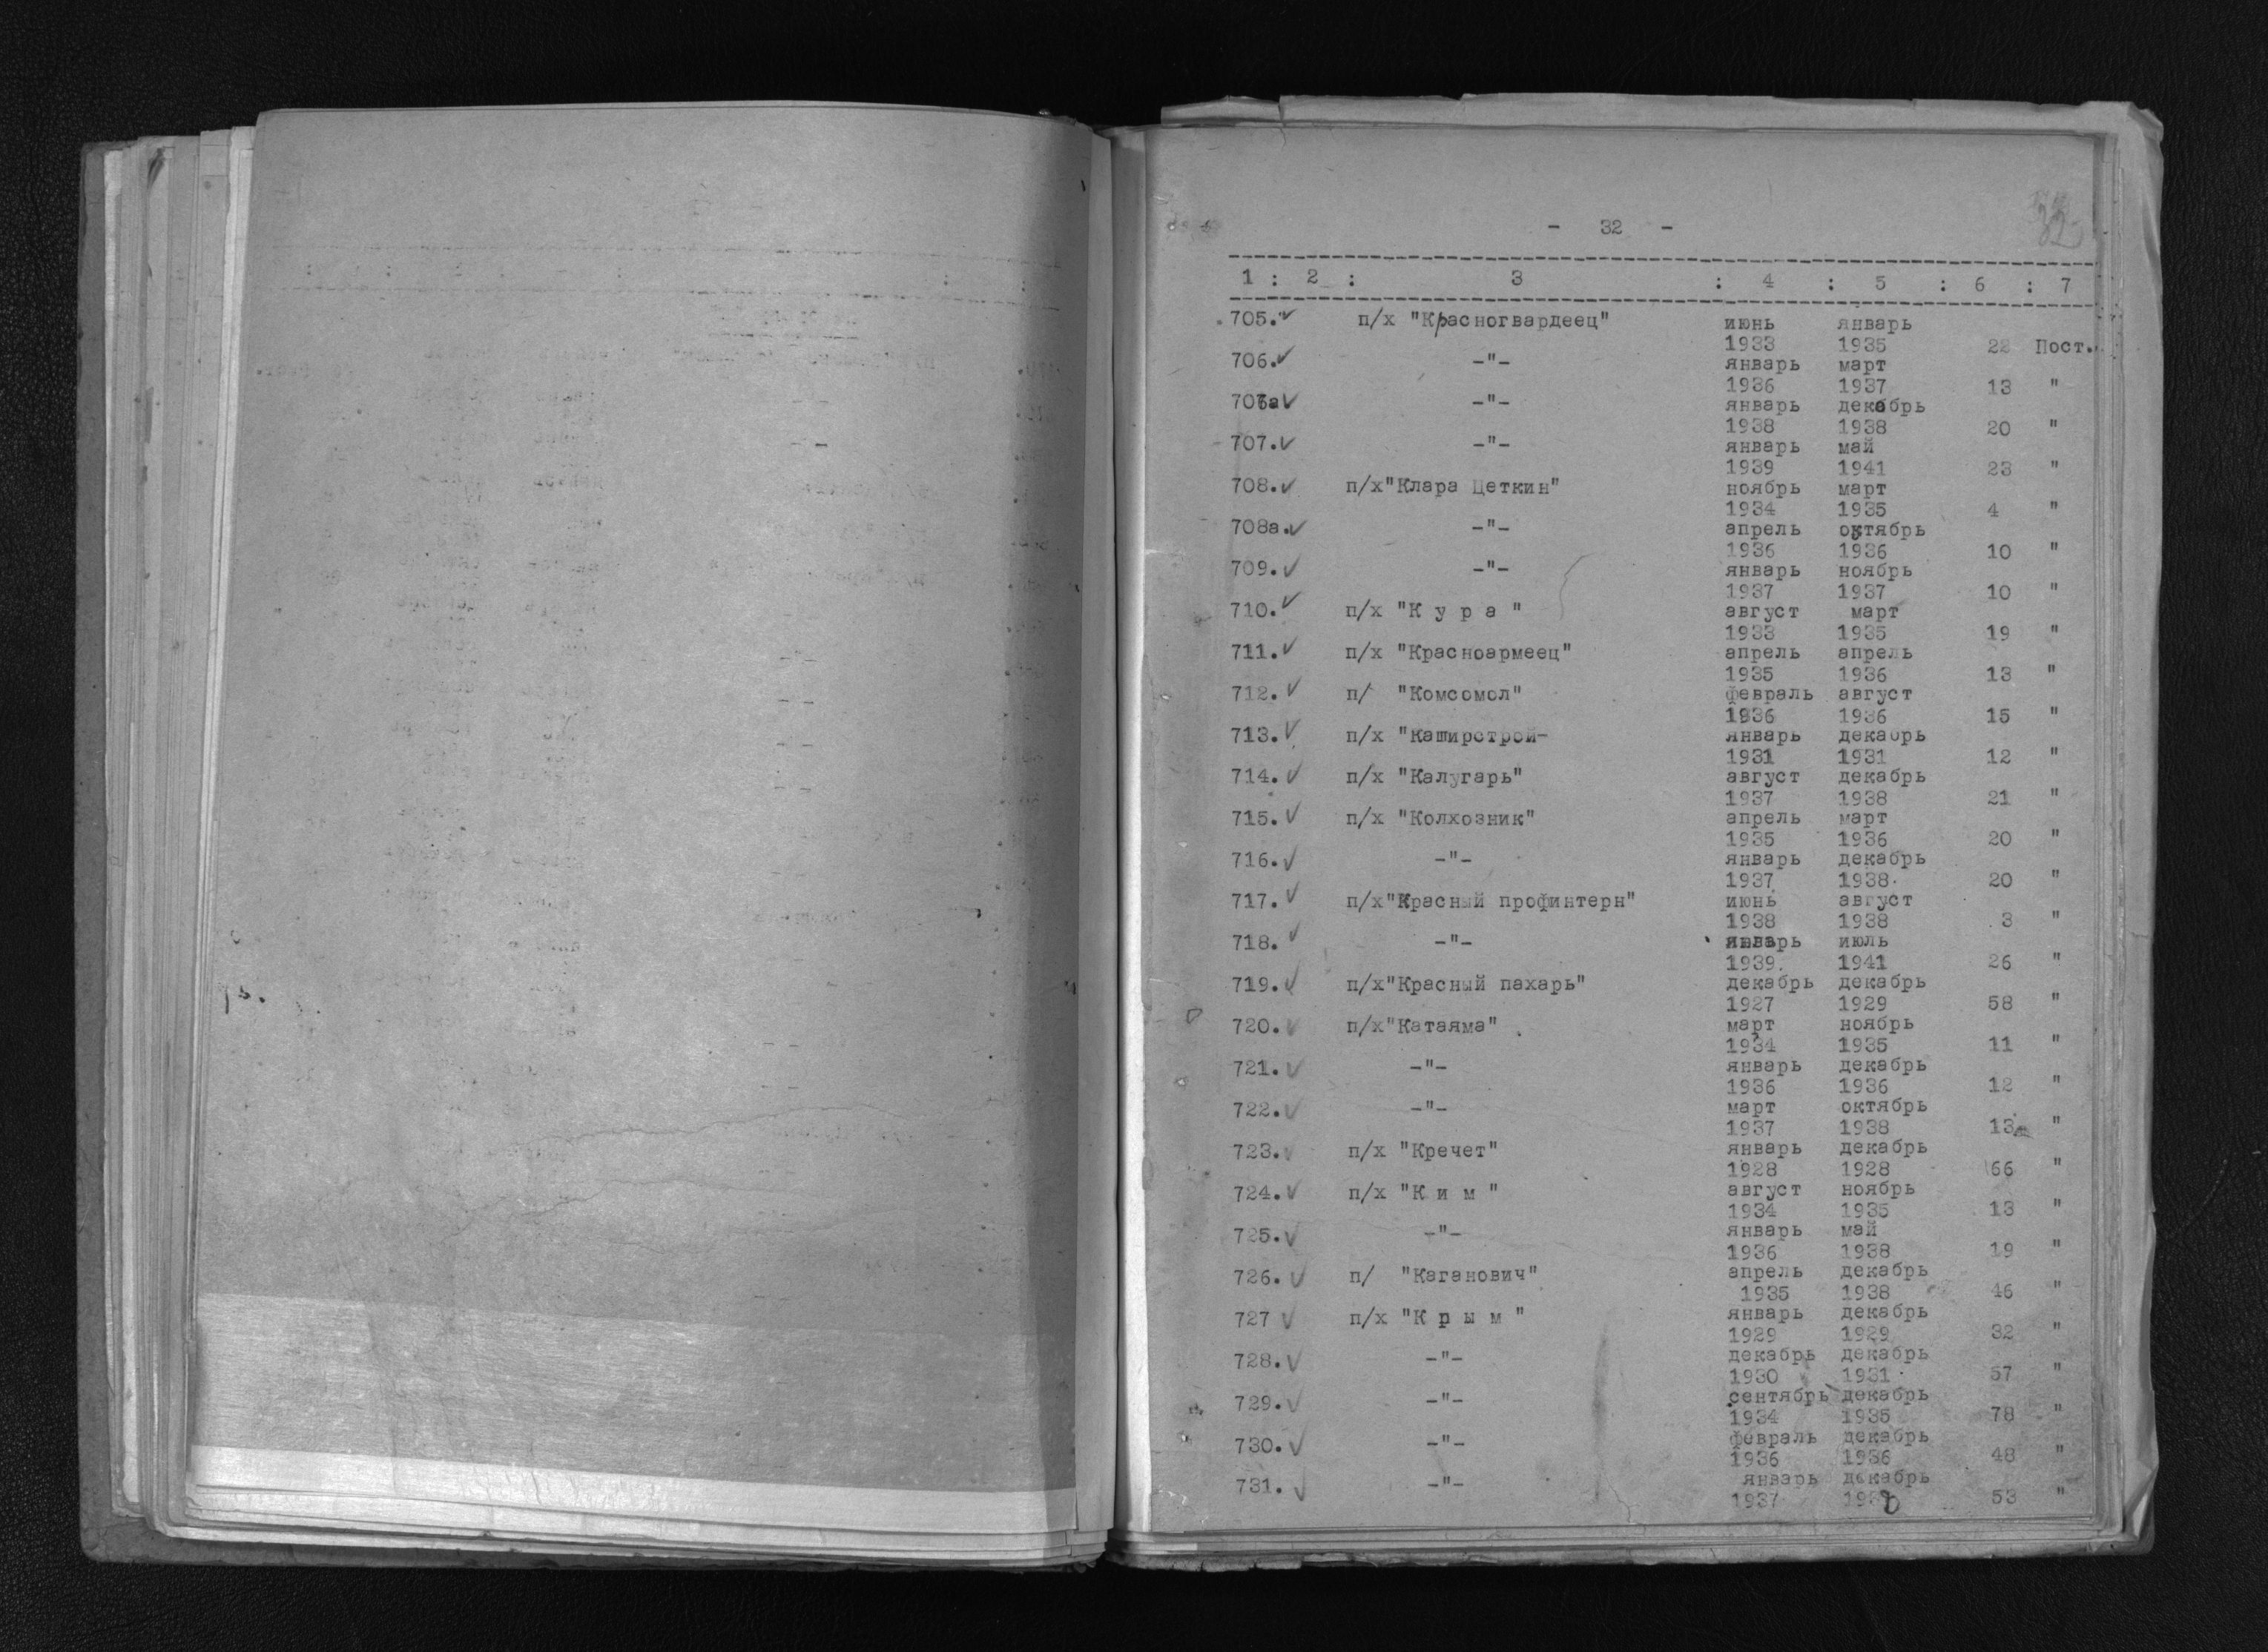 - 32 -
32
1 : 2 : 3 : 4 : 5 : 6 : 7
705. п/х "Красногвардеец" июнь январь
1933 1935 22 Пост.
706. -"- январь март
1936 1937 13 "
706а -"- январь декабрь
1938 1938 20 "
707. -"- январь май
1939 1941 23 "
708. п/х"Клара Цеткин" ноябрь март
1934 1935 4 "
708а. -"- апрель октябрь
1936 1936 10 "
709. -"- январь ноябрь
1937 1937 10 "
710. п/х "К у р а " август март
1933 1935 19 "
711. п/х "Красноармеец" апрель апрель
1935 1936 13 "
712. п/ "Комсомол" февраль август
1936 1936 15 "
713. п/х "Каширстрой- январь декабрь
1931 1931 12 "
714. п/х "Калугарь" август декабрь
1937 1938 21 "
715. п/х "Колхозник" апрель март
1935 1936 20 "
716. -"- январь декабрь
1937 1938 20 "
717. п/х"Красный профинтерн" июнь август
1938 1938 3 "
718. -"- январь июль
1939. 1941 26 "
719. п/х"Красный пахарь" декабрь декабрь
1927 1929 58 "
720. п/х"Катаяма" март ноябрь
1934 1935 11 "
721. -"- январь декабрь
1936 1936 12 "
722. -"- март октябрь
1937 1938 13 "
723. п/х "Кречет" январь декабрь
1928 1928 66 "
724. п/х "К и м " август ноябрь
1934 1935 13 "
725. -"- январь май
1936 1938 19 "
726. п/ "Каганович" апрель декабрь
1935 1938 46 "
727 п/х "К р ы м " январь декабрь
1929 1929 32 "
728. -"- декабрь декабрь
1930 1931 57 "
729. -"- сентябрь декабрь
1934 1935 78 "
730. -"- февраль декабрь
1936 1936 48 "
731. -"- январь декабрь
1937 53 "